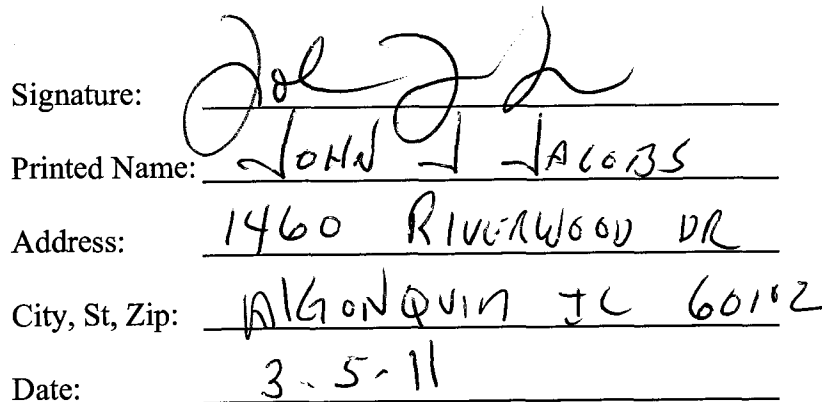 Signature:
Printed Name: JOHN J JACOBS
Address: 1460 RIVERWOOD DR
City, St, Zip: AlGONQUIN IL 60102
Date: 3-5-11